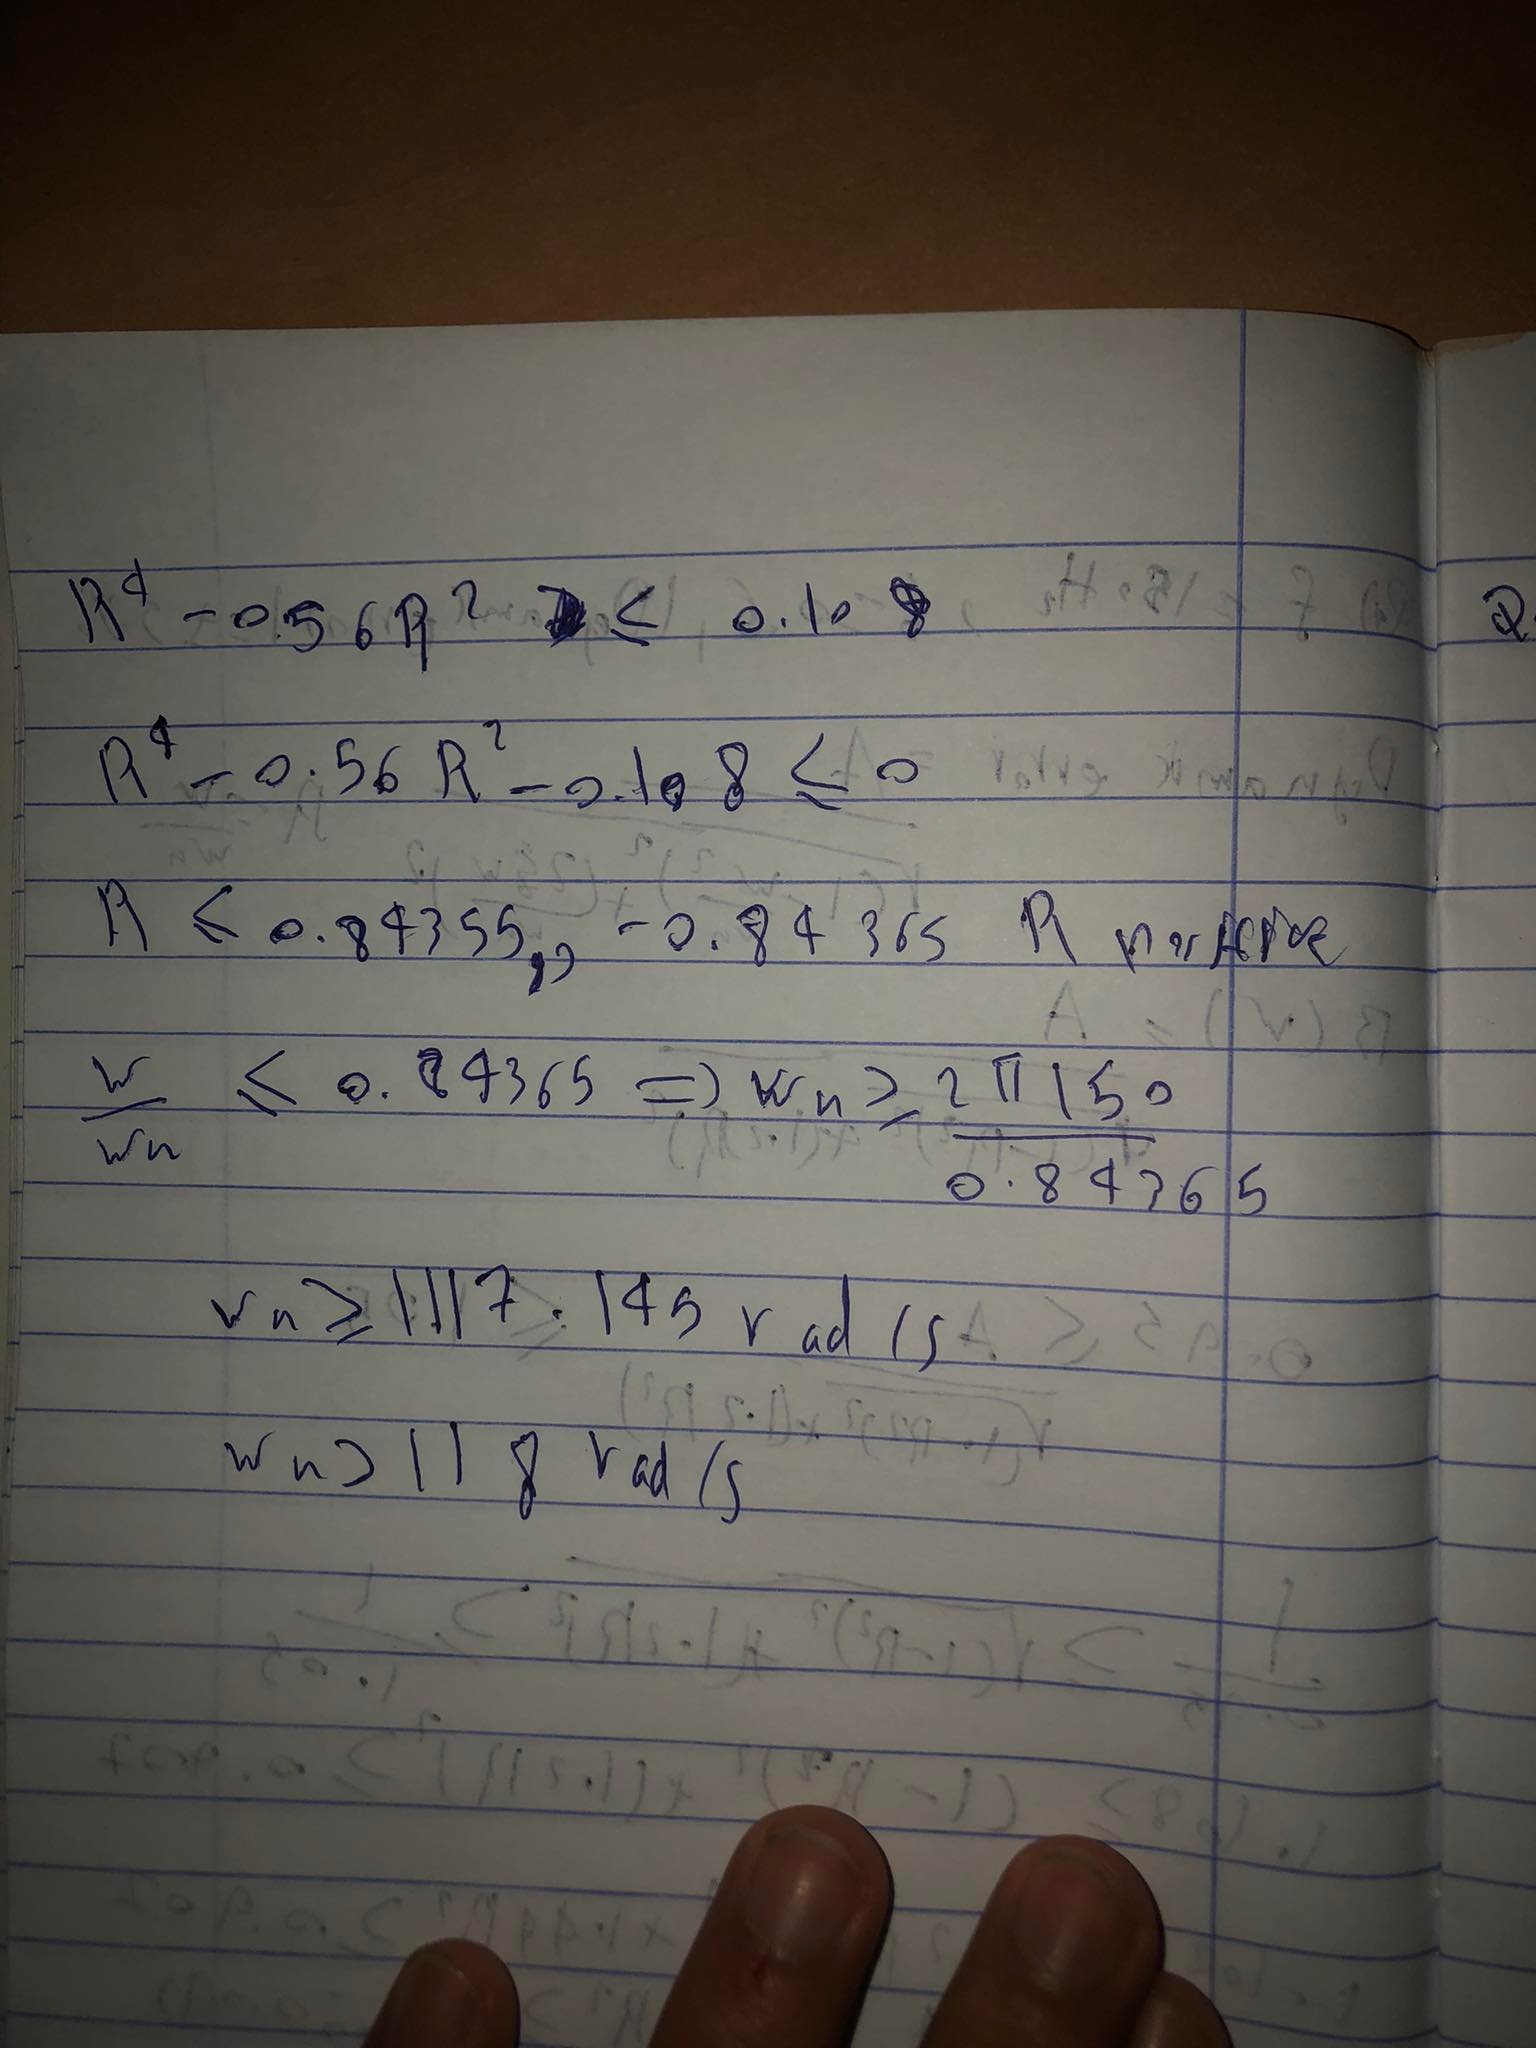 R⁴ - 0.56R² ≤ 0.108
R⁴ - 0.56R² - 0.108 ≤ 0
R ≤ 0.84355,, -0.84365 R
w/wn ≤ 0.84365 => wn ≥ 2π150/0.84365
wn ≥ 1117.145 rad/s
wn > 118 rad/s
Q